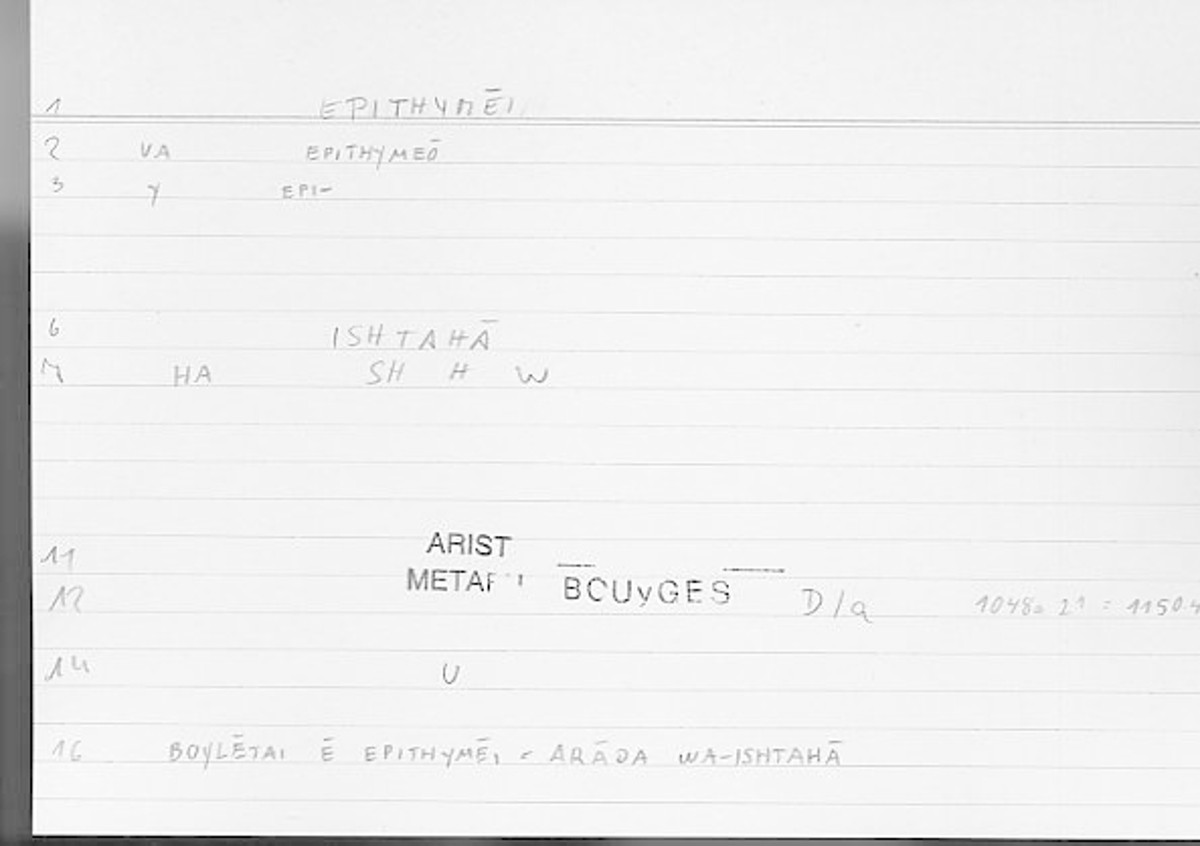 1 EPITHYMĒI
2 VA EPITHYMEŌ
3 Y EPI-
6 ISHTAHĀ
7 HA SH H W
11 ARIST
12 BOUyGES D/a 1048a 21 = 1150.4
14 U
16 BOYLĒTAI Ē EPITHYMĒI = ARĀDA WA-ISHTAHĀ